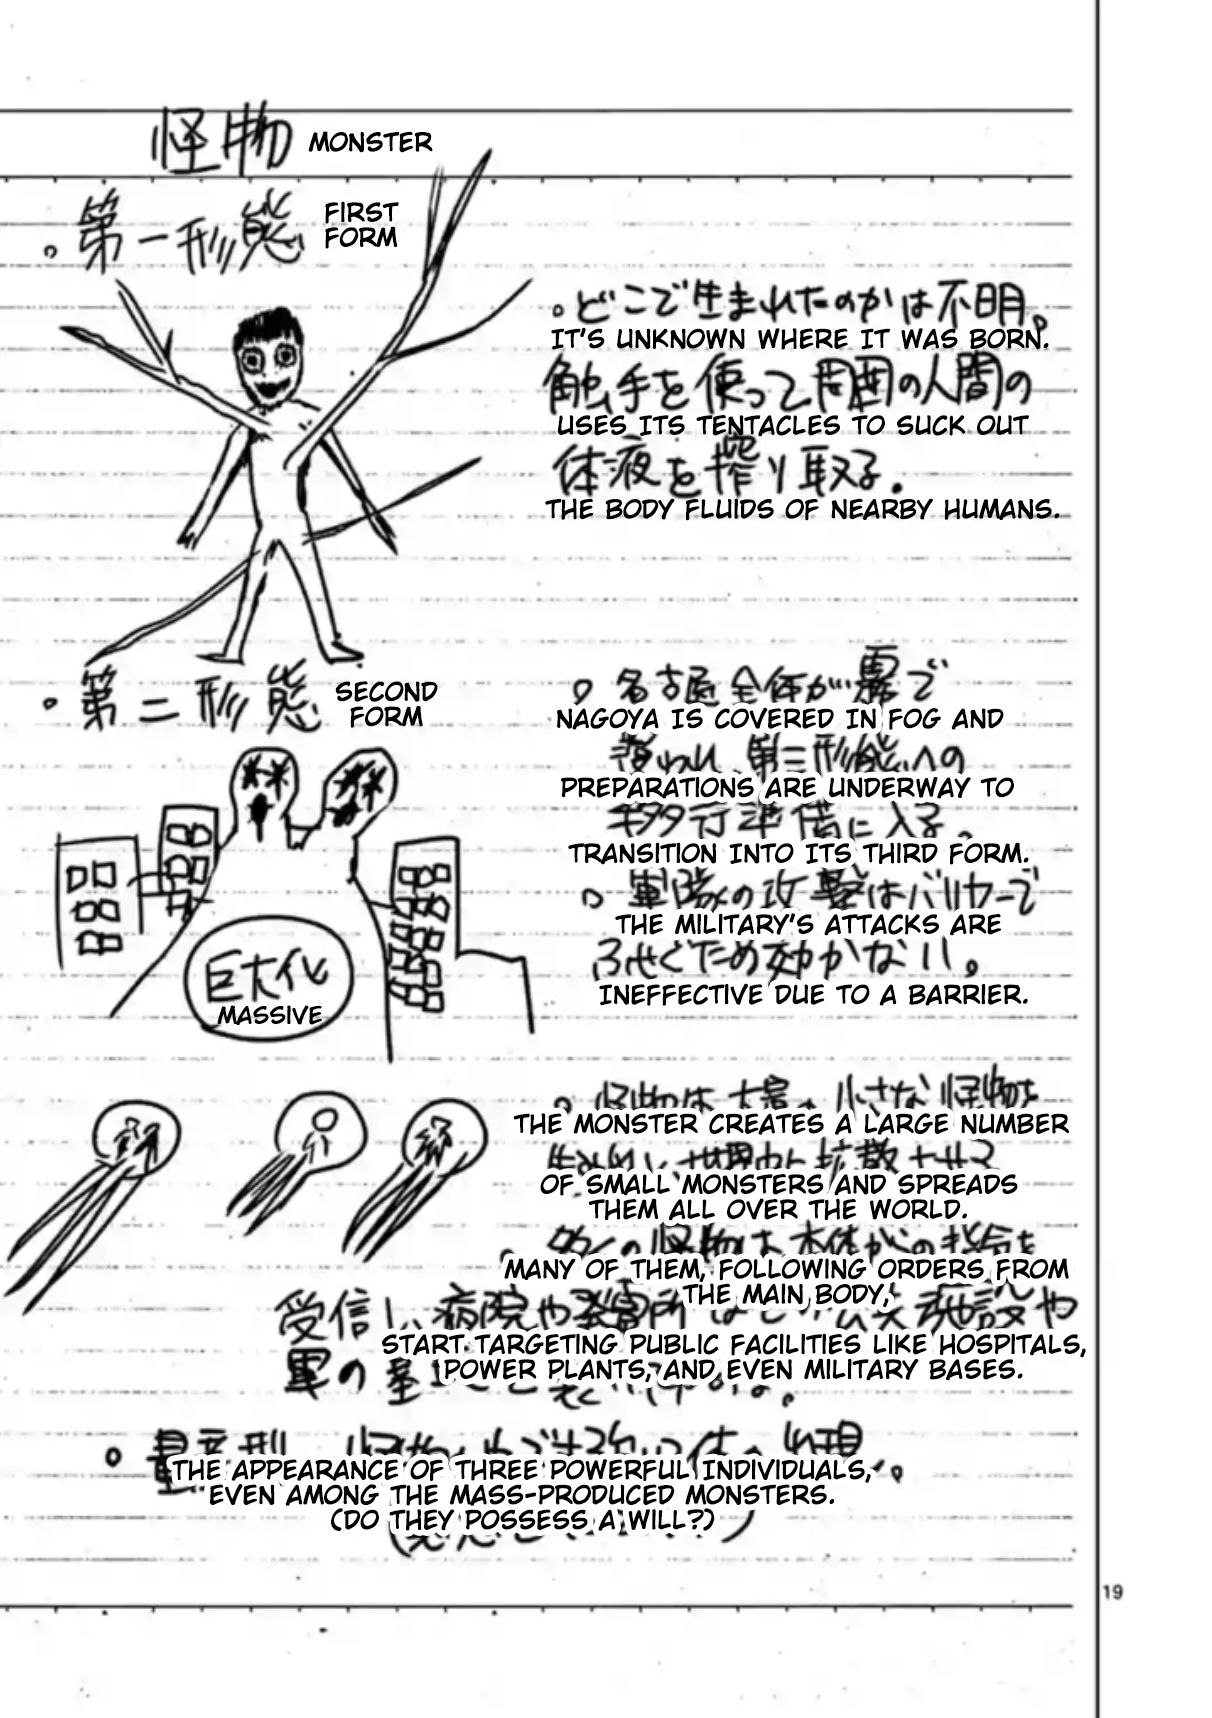 怪物 MONSTER
。第一形態 FIRST
FORM
。どこで生まれたのかは不明。
IT'S UNKNOWN WHERE IT WAS BORN.
触手を使って周囲の人間の
USES ITS TENTACLES TO SUCK OUT
体液を搾り取る。
THE BODY FLUIDS OF NEARBY HUMANS.
・第二形態 SECOND
FORM
。名古屋全体が霧で
NAGOYA IS COVERED IN FOG AND
覆われ、第三形態への
PREPARATIONS ARE UNDERWAY TO
移行準備に入る。
TRANSITION INTO ITS THIRD FORM.
。軍隊の攻撃はバリヤーで
THE MILITARY'S ATTACKS ARE
ふせぐため効かない。
INEFFECTIVE DUE TO A BARRIER.
巨大化
MASSIVE
。怪物は大害の小さな怪物を
THE MONSTER CREATES A LARGE NUMBER
OF SMALL MONSTERS AND SPREADS
THEM ALL OVER THE WORLD.
多くの怪物は本体からの指令を
MANY OF THEM, FOLLOWING ORDERS FROM
THE MAIN BODY,
受信し、病院や発電所 施設や
START TARGETING PUBLIC FACILITIES LIKE HOSPITALS,
軍の基
POWER PLANTS, AND EVEN MILITARY BASES.
THE APPEARANCE OF THREE POWERFUL INDIVIDUALS,
EVEN AMONG THE MASS-PRODUCED MONSTERS.
(DO THEY POSSESS A WILL?)
19